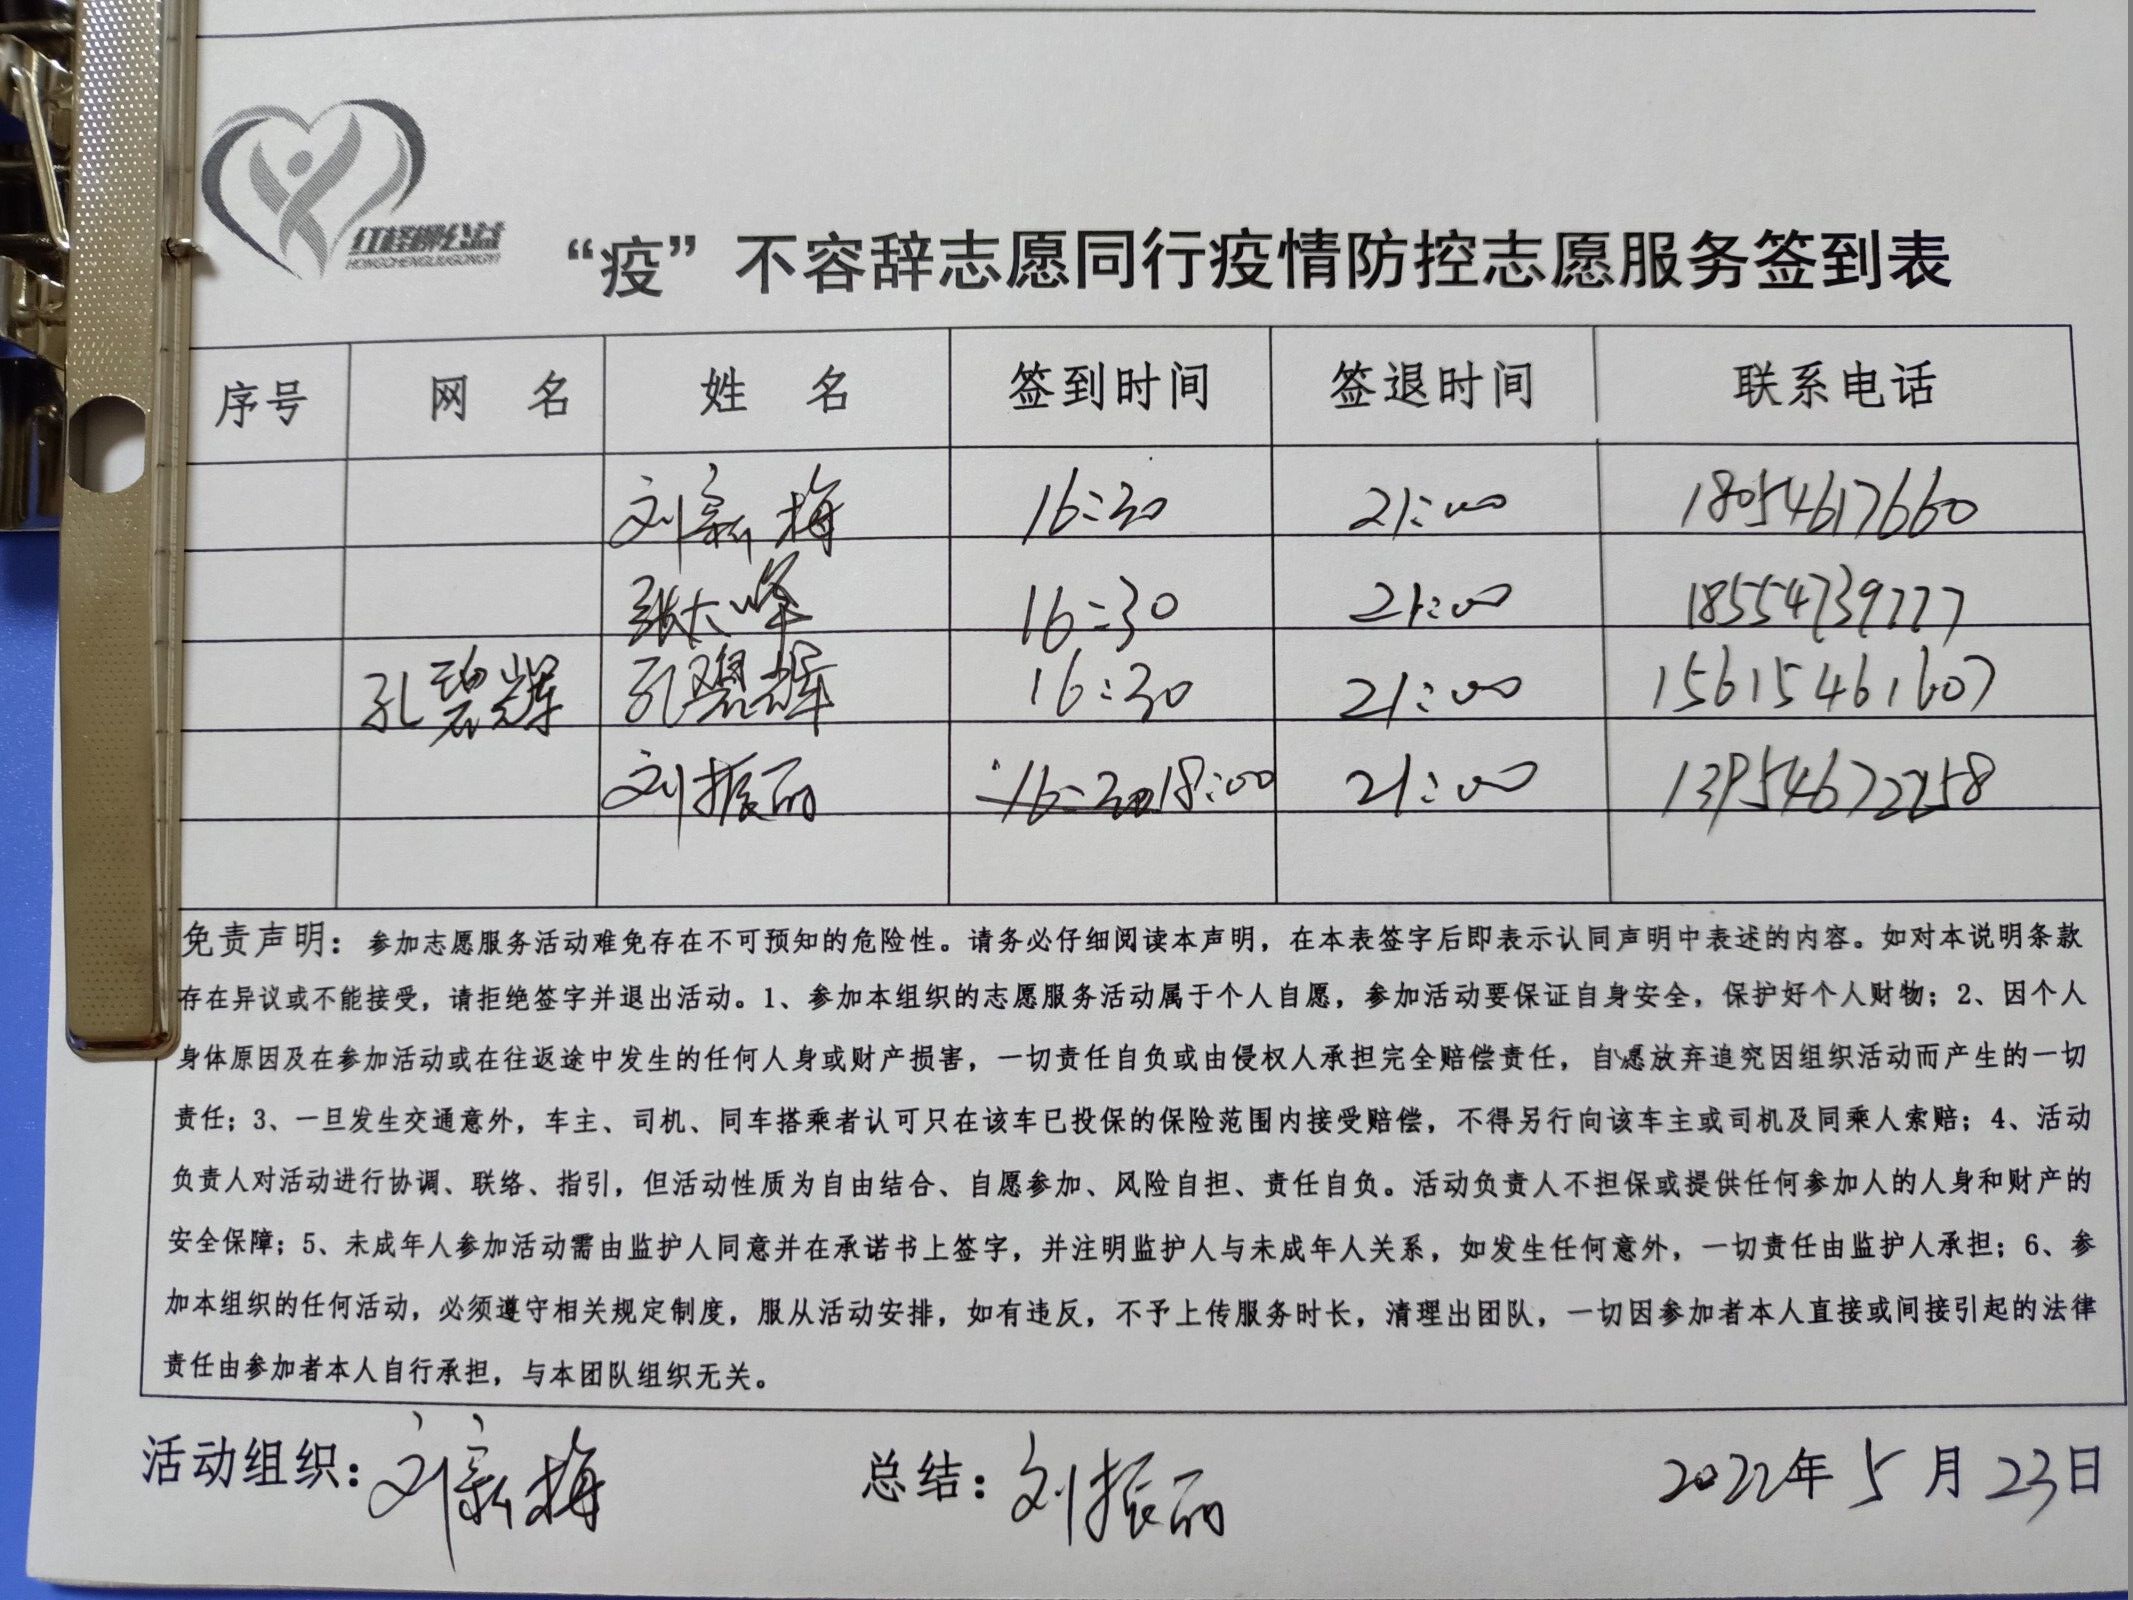 红柽柳公益
HONGCHENGLIUGONGYI
“疫”不容辞志愿同行疫情防控志愿服务签到表
序号 网 名 姓 名 签到时间 签退时间 联系电话
刘新梅 16:30 21:00 18054617660
张大峰 16:30 21:00 18554739777
孔碧辉 孔碧辉 16:30 21:00 15615461607
刘振丽 16:30 18:00 21:00
免责声明：参加志愿服务活动难免存在不可预知的危险性。请务必仔细阅读本声明，在本表签字后即表示认同声明中表述的内容。如对本说明条款
存在异议或不能接受，请拒绝签字并退出活动。1、参加本组织的志愿服务活动属于个人自愿，参加活动要保证自身安全，保护好个人财物；2、因个人
身体原因及在参加活动或在往返途中发生的任何人身或财产损害，一切责任自负或由侵权人承担完全赔偿责任，自愿放弃追究因组织活动而产生的一切
责任；3、一旦发生交通意外，车主、司机、同车搭乘者认可只在该车已投保的保险范围内接受赔偿，不得另行向该车主或司机及同乘人索赔；4、活动
负责人对活动进行协调、联络、指引，但活动性质为自由结合、自愿参加、风险自担、责任自负。活动负责人不担保或提供任何参加人的人身和财产的
安全保障；5、未成年人参加活动需由监护人同意并在承诺书上签字，并注明监护人与未成年人关系，如发生任何意外，一切责任由监护人承担；6、参
加本组织的任何活动，必须遵守相关规定制度，服从活动安排，如有违反，不予上传服务时长，清理出团队，一切因参加者本人直接或间接引起的法律
责任由参加者本人自行承担，与本团队组织无关。
活动组织：刘新梅 总结：刘振丽 2022年 5 月 23日